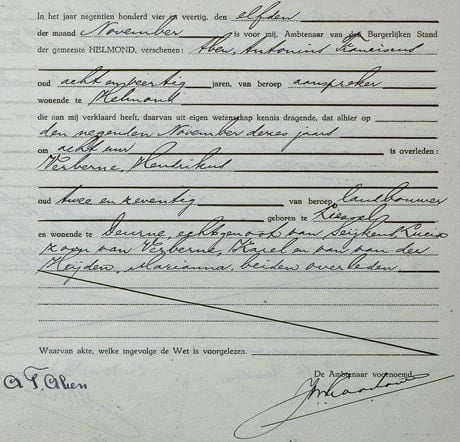 In het jaar negentien honderd vier en veertig, den elfden
der maand November is voor mij, Ambtenaar van den Burgerlijken Stand
der gemeente HELMOND, verschenen: Aben, Antonius Franciscus
oud acht en veertig jaren, van beroep aanspreker
wonende te Helmond
die aan mij verklaard heeft, daarvan uit eigen wetenschap kennis dragende, dat alhier op
den negenden November dezes jaars
om acht uur is overleden:
Verberne, Hendrikus
oud twee en zeventig van beroep landbouwer
geboren te Liessel
en wonende te Deurne, echtgenoot van Seijkens Lucia
zoon van Verberne, Karel en van van der
Heijden, Marianna, beiden overleden.
Waarvan akte, welke ingevolge de Wet is voorgelezen.
De Ambtenaar voornoemd,
A F Aben